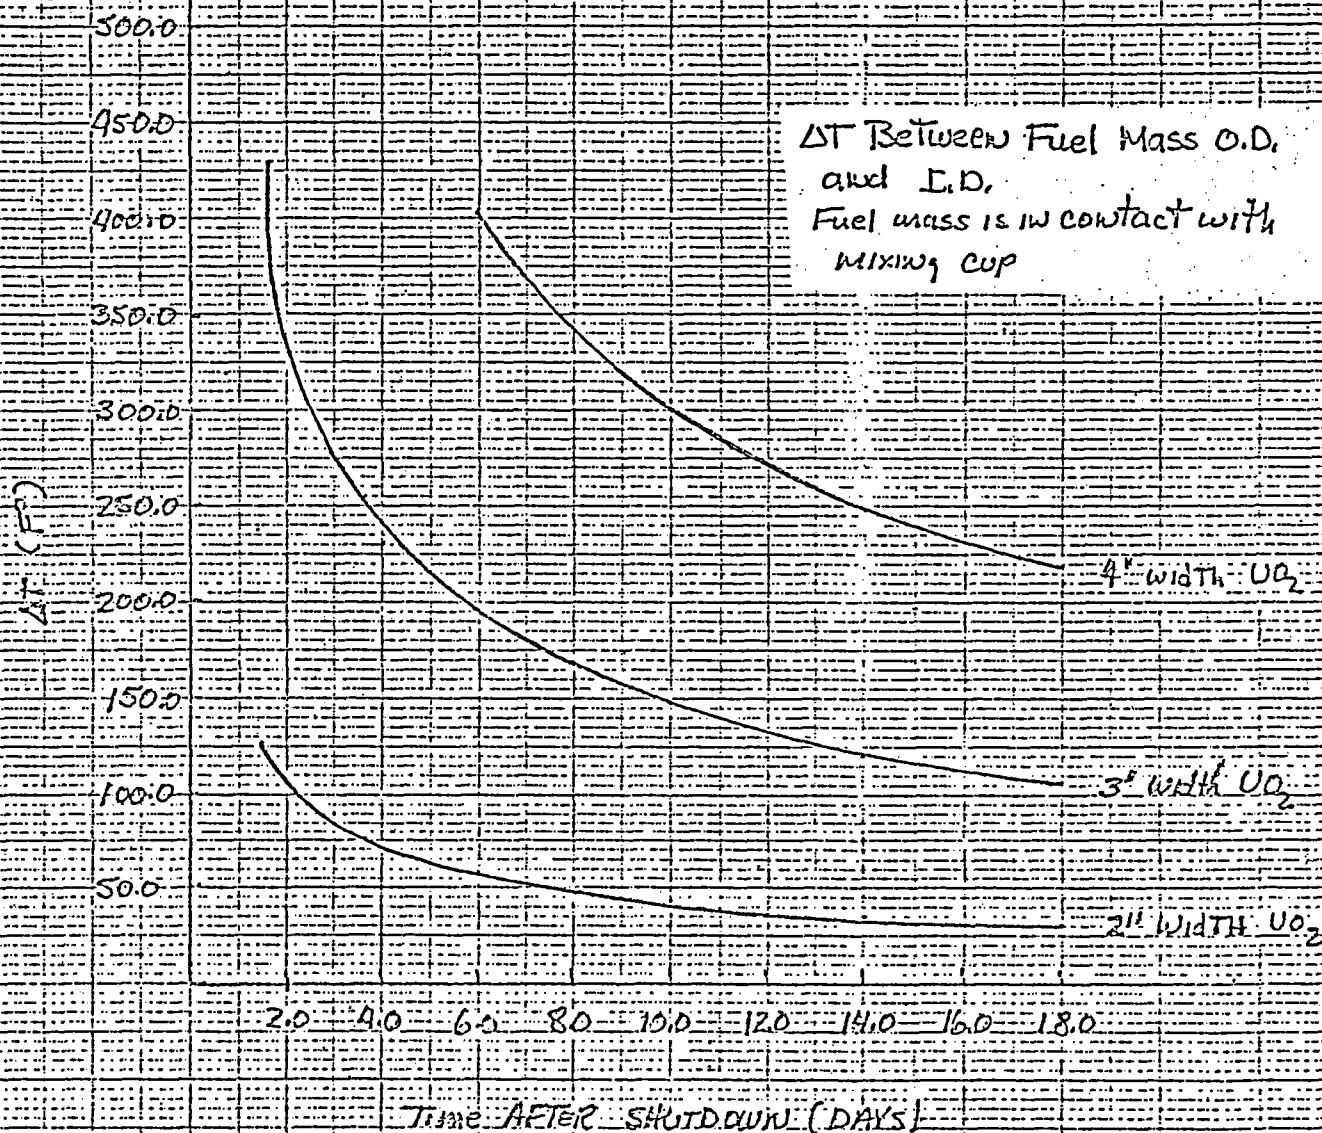 500.0
450.0
400.0
350.0
300.0
250.0
200.0
150.0
100.0
50.0
ΔT (F°)
ΔT Between Fuel Mass O.D.
and I.D.
Fuel mass is in contact with
mixing cup
4" width UO2
3" width UO2
2" WIDTH UO2
2.0 4.0 6.0 8.0 10.0 12.0 14.0 16.0 18.0
Time AFTER SHUTDOWN (DAYS)